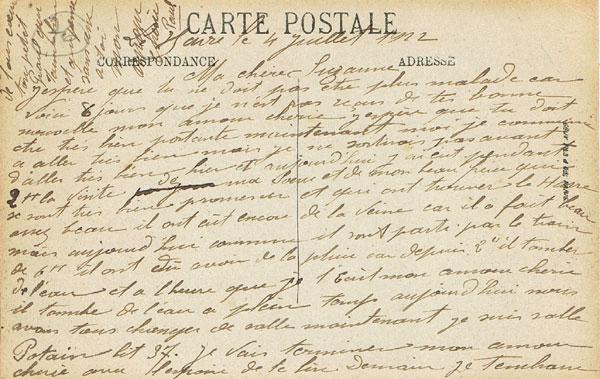 CARTE POSTALE
Havre le 4 juillet 1912
CORRESPONDANCE ADRESSE
Ma chere Suzanne
J'espère que tu ne doit pas etre plus malade car
voici 8 jours que je n'est pas recus de tes bonne
nouvelle mon amour cherie j'espère que tu doit
etre tres bien portante maintenant moi je commence
a aller tres bien mais je ne sortirai pas avant
d'aller tres bien hier et aujourd'hui j'ai eut pendant
2 la visite de ma Soeur et de mon beau frere qui
se sont tres bien promener et qui ont trouver le Havre
assez beau il ont eut encore de la veine car il a fait beau
mais aujourd'hui comme il sont parti par le train
de 6 il ont dû avoir de la pluie car depuis 2 il tombe
de l'eau et a l'heure que je t'ecrit mon amour cherie
il tombe de l'eau a plein temps aujourd'hui nous
avons tous changer de salle maintenant je suis salle
Potain lit 37. je vais terminer mon amour
cherie avec l'espoire de te lire Demain je t'embrasse